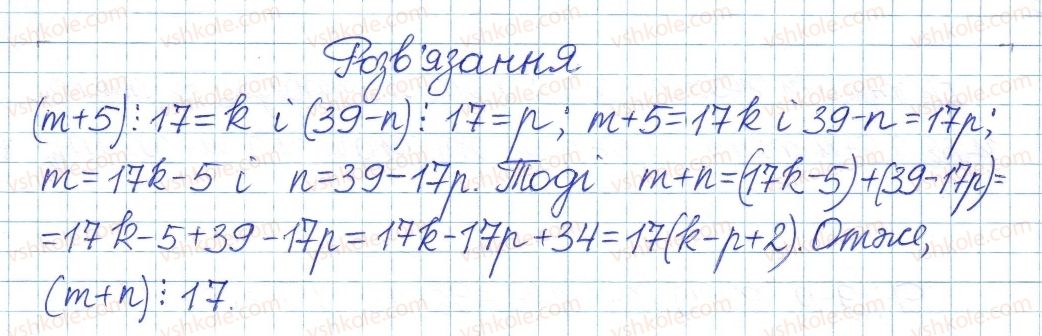 Розв'язання
(m+5)⋮17=k і (39-n)⋮17=p; m+5=17k і 39-n=17p;
m=17k-5 і n=39-17p. Тоді m+n=(17k-5)+(39-17p)=
=17k-5+39-17p=17k-17p+34=17(k-p+2). Отже,
(m+n)⋮17.